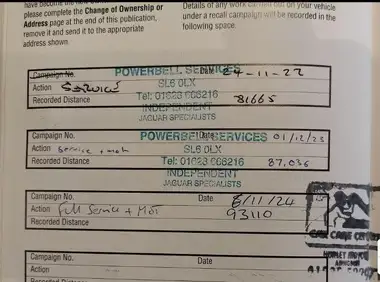 please complete the Change of Ownership or
Address page at the end of this publication,
remove it and send it to the appropriate
address shown.
Details of any work carried out on your vehicle
under a recall campaign will be recorded in the
following space.
Campaign No. POWERBELL SERVICES Date 24-11-22
Action Service SL6 0LX
Recorded Distance Tel: 01628 666216 81665
INDEPENDENT
JAGUAR SPECIALISTS
Campaign No. POWERBELL SERVICES Date 01/12/23
Action Service + mot SL6 0LX
Recorded Distance Tel: 01628 666216 87,036
INDEPENDENT
JAGUAR SPECIALISTS
Campaign No. Date 8/11/24
Action Full Service + MOT 93110
Recorded Distance
CAR CARE
Campaign No. Date
Action
Recorded Distance